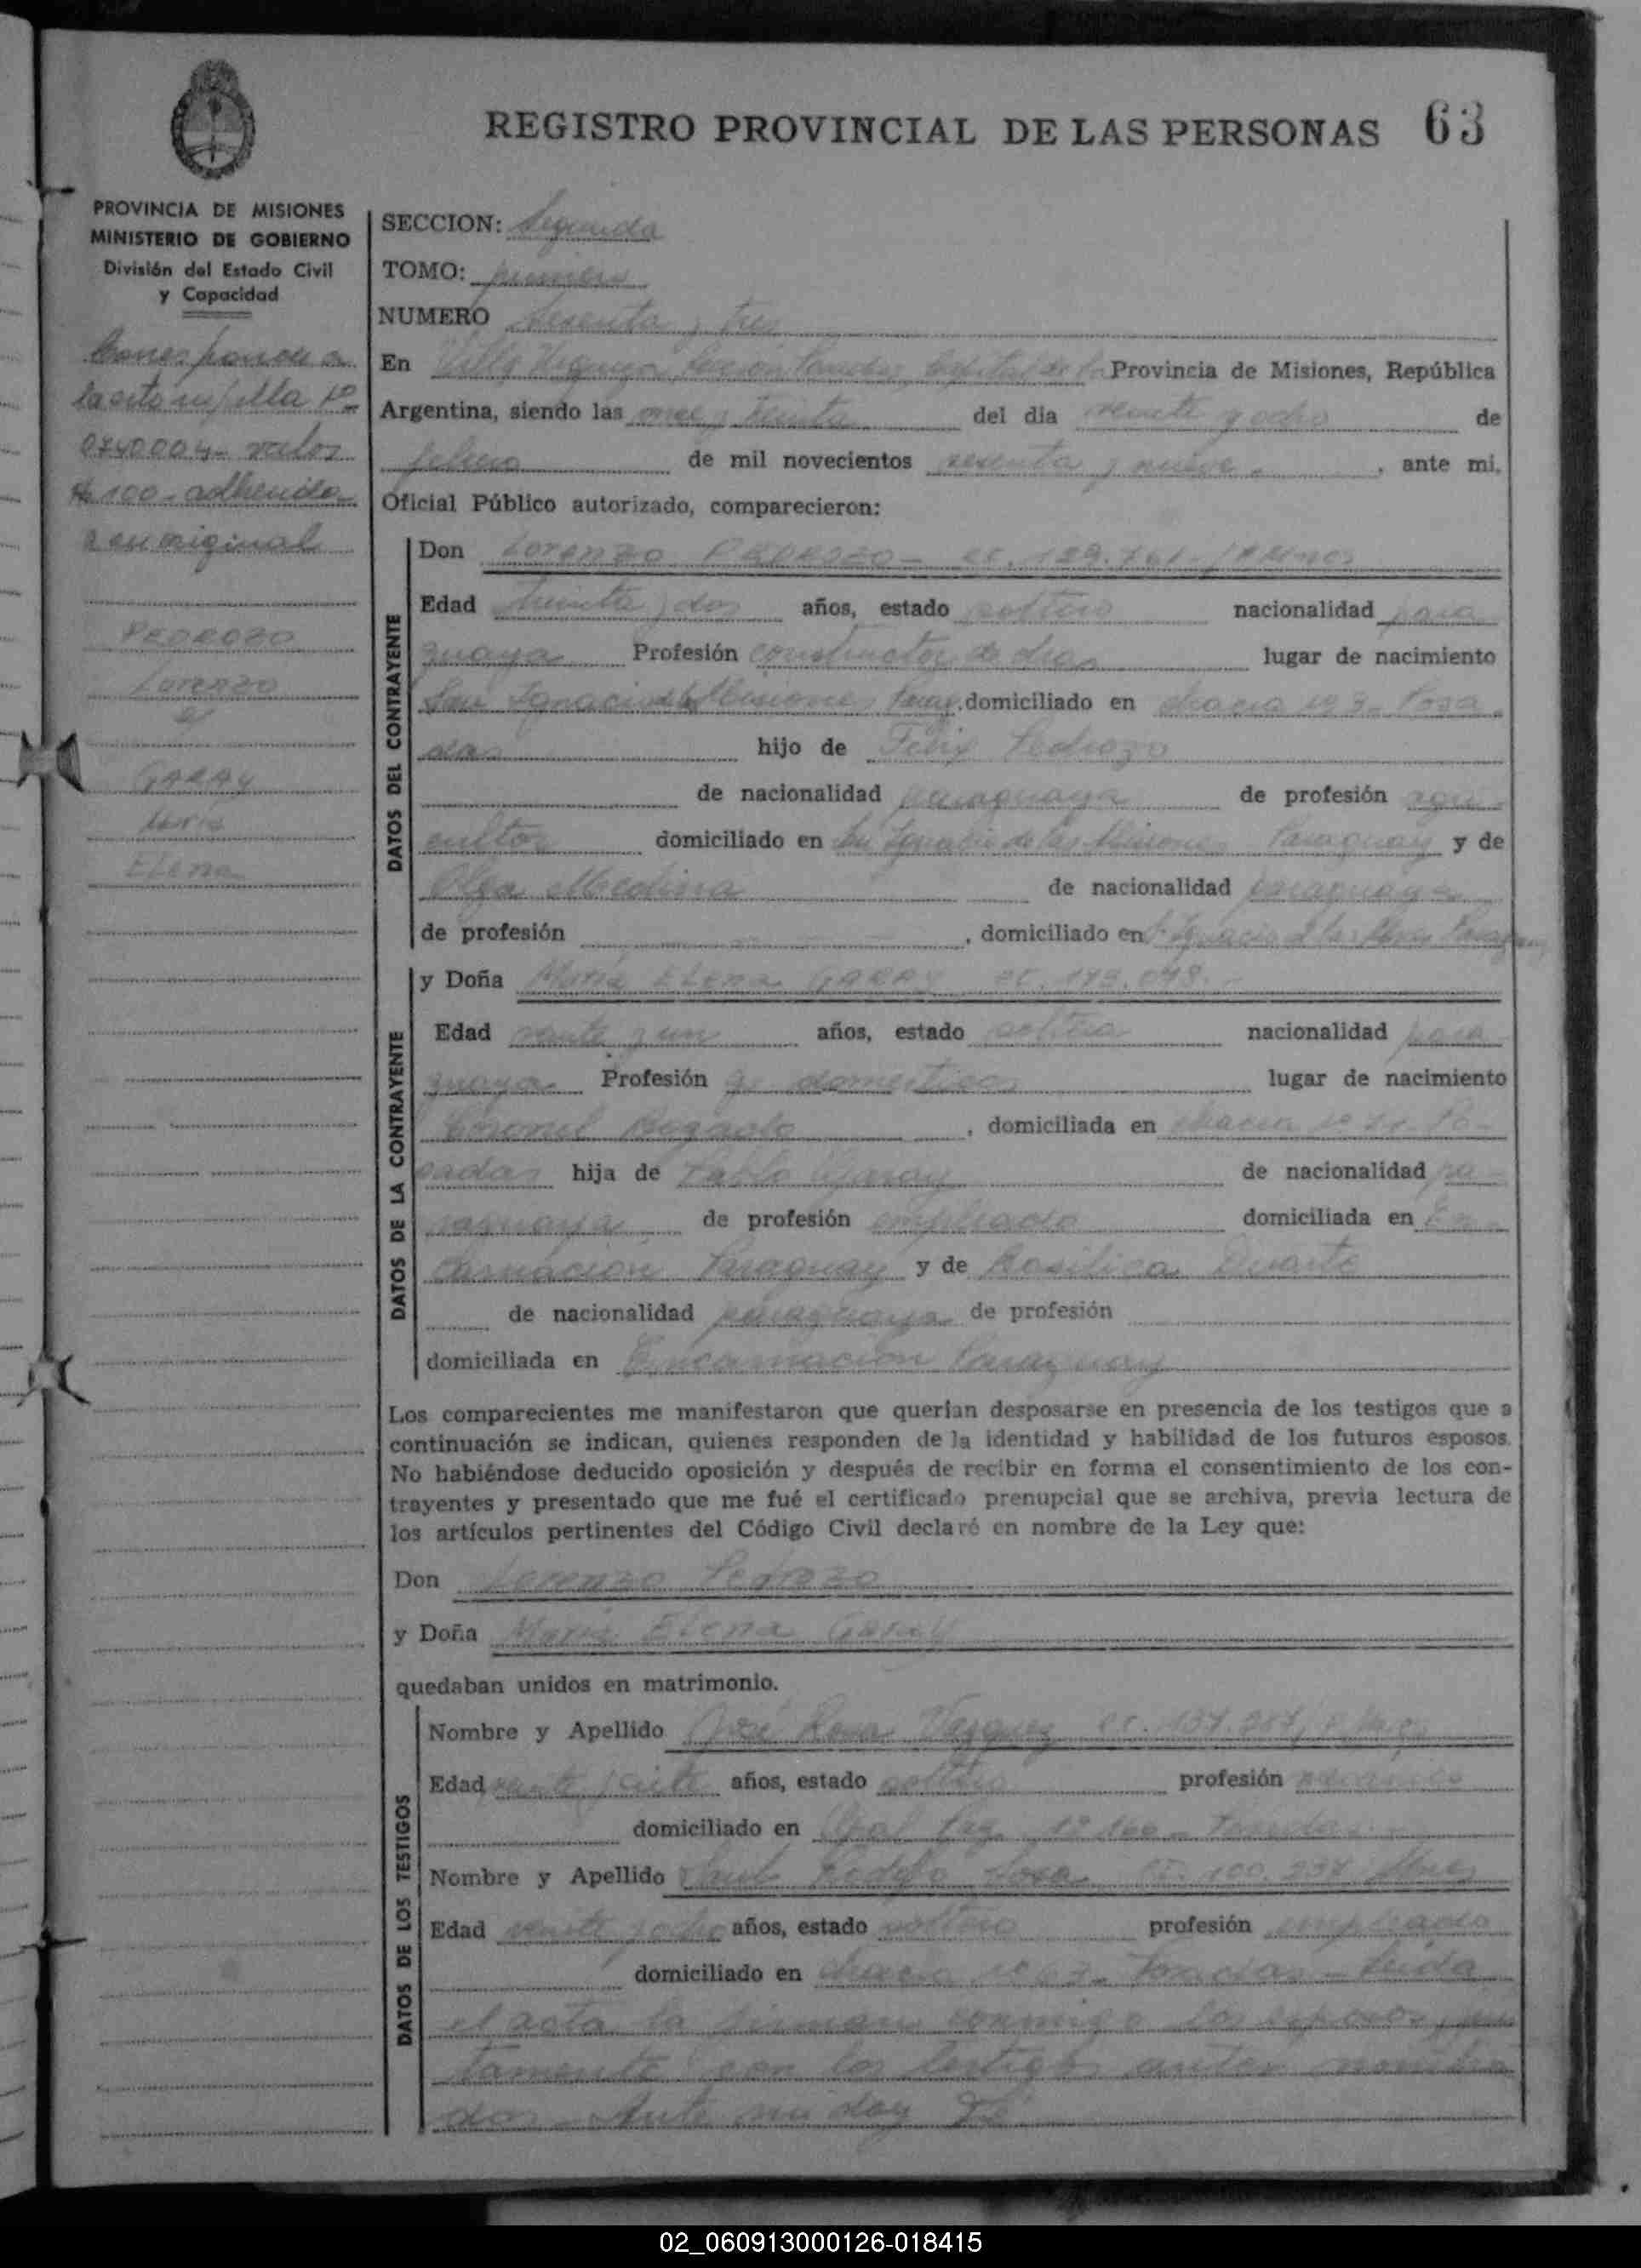 REGISTRO PROVINCIAL DE LAS PERSONAS 63
PROVINCIA DE MISIONES
MINISTERIO DE GOBIERNO
División del Estado Civil
y Capacidad
Corresponde a
la estampilla Nº
0740004- valor
$ 100- adherida
a su original
PEDROZO
Lorenzo
y
GARAY
María
Elena
SECCION: Segunda
TOMO: primero
NUMERO sesenta y tres
En Villa Urquiza Provincia de Misiones, República
Argentina, siendo las once y treinta del dia veinte y ocho de
febrero de mil novecientos sesenta y nueve. , ante mi,
Oficial Público autorizado, comparecieron:
DATOS DEL CONTRAYENTE
Don Lorenzo PEDROZO - CI. 129.761- Misiones
Edad treinta y dos años, estado soltero nacionalidad para
guaya Profesión constructor de obras lugar de nacimiento
San Ignacio de las Misiones Parag. domiciliado en chacra nº 3- Posa
das hijo de Felix Pedrozo
de nacionalidad paraguaya de profesión agri
cultor domiciliado en San Ignacio de las Misiones Paraguay y de
Olga Medina de nacionalidad paraguaya
de profesión , domiciliado en S. Ignacio d las Mnes Paraguay
DATOS DE LA CONTRAYENTE
y Doña María Elena GARAY CI. 173.048.-
Edad veinte y un años, estado soltera nacionalidad para
guaya Profesión q. domesticos lugar de nacimiento
Coronel Bogado , domiciliada en chacra nº Po-
sadas hija de Pablo Garay de nacionalidad pa
raguaya de profesión empleado domiciliada en En-
carnación Paraguay y de Basilica Duarte
de nacionalidad paraguaya de profesión
domiciliada en Encarnación Paraguay
Los comparecientes me manifestaron que querían desposarse en presencia de los testigos que a
continuación se indican, quienes responden de la identidad y habilidad de los futuros esposos.
No habiéndose deducido oposición y después de recibir en forma el consentimiento de los con-
trayentes y presentado que me fué el certificado prenupcial que se archiva, previa lectura de
los artículos pertinentes del Código Civil declaré en nombre de la Ley que:
Don Lorenzo Pedrozo
y Doña María Elena Garay
quedaban unidos en matrimonio.
DATOS DE LOS TESTIGOS
Nombre y Apellido José Rosa Vazquez CI. 137.257,
Edad veinte y siete años, estado soltero profesión mecanico
domiciliado en Gral Paz Nº 160 - Posadas -
Nombre y Apellido Rodolfo Sosa CI. 100.237 Mnes
Edad veinte y ocho años, estado soltero profesión empleado
domiciliado en chacra nº 63- Posadas - Leida
el acta la firman conmigo los esposos jun
tamente con los testigos antes nombra
dos - Ante mi doy Fé
02_060913000126-018415